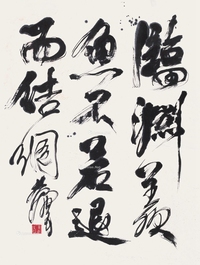 臨淵羨
魚不若退
而结網